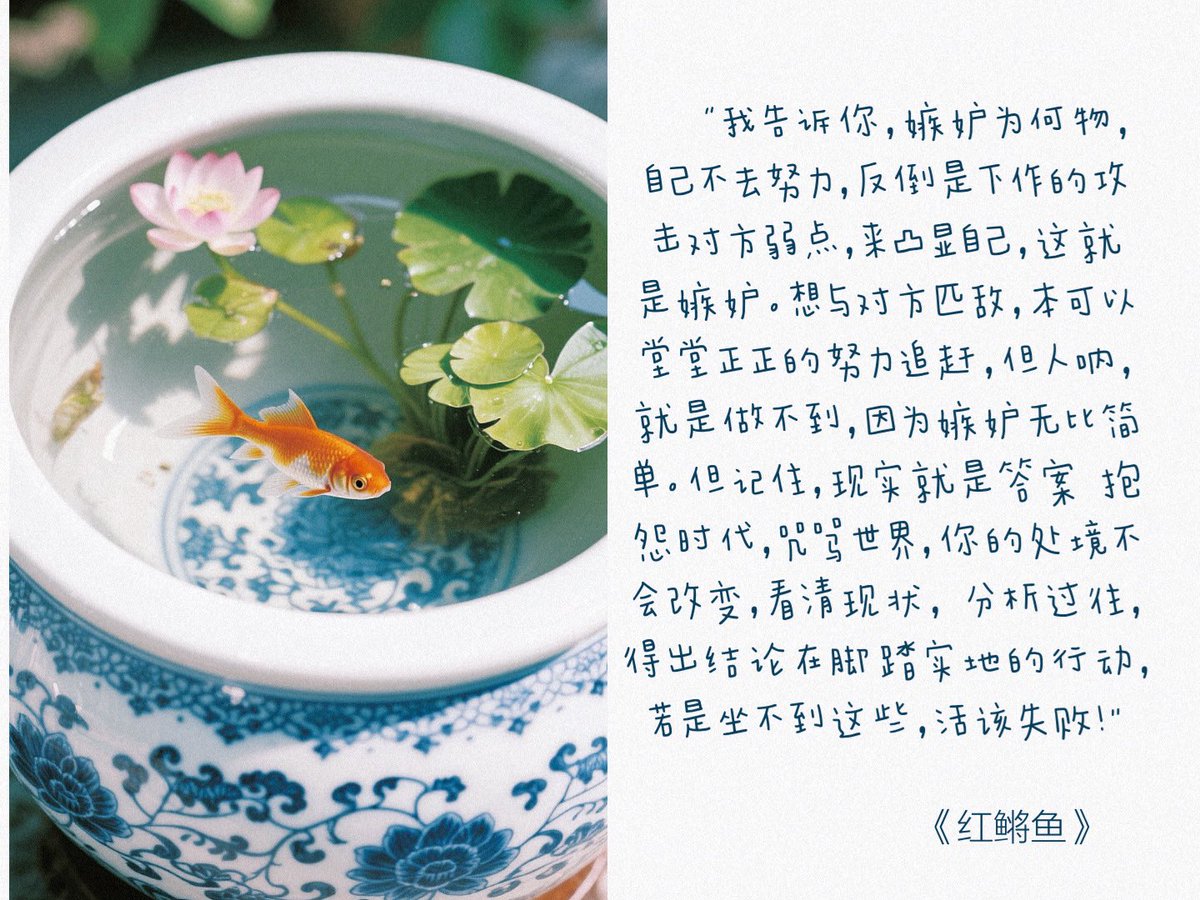 "我告诉你，嫉妒为何物，
自己不去努力，反倒是下作的攻
击对方弱点，来凸显自己，这就
是嫉妒。想与对方匹敌，本可以
堂堂正正的努力追赶，但人呐，
就是做不到，因为嫉妒无比简
单。但记住，现实就是答案 抱
怨时代，咒骂世界，你的处境不
会改变，看清现状，分析过往，
得出结论在脚踏实地的行动，
若是坐不到这些，活该失败！"
《红鳉鱼》